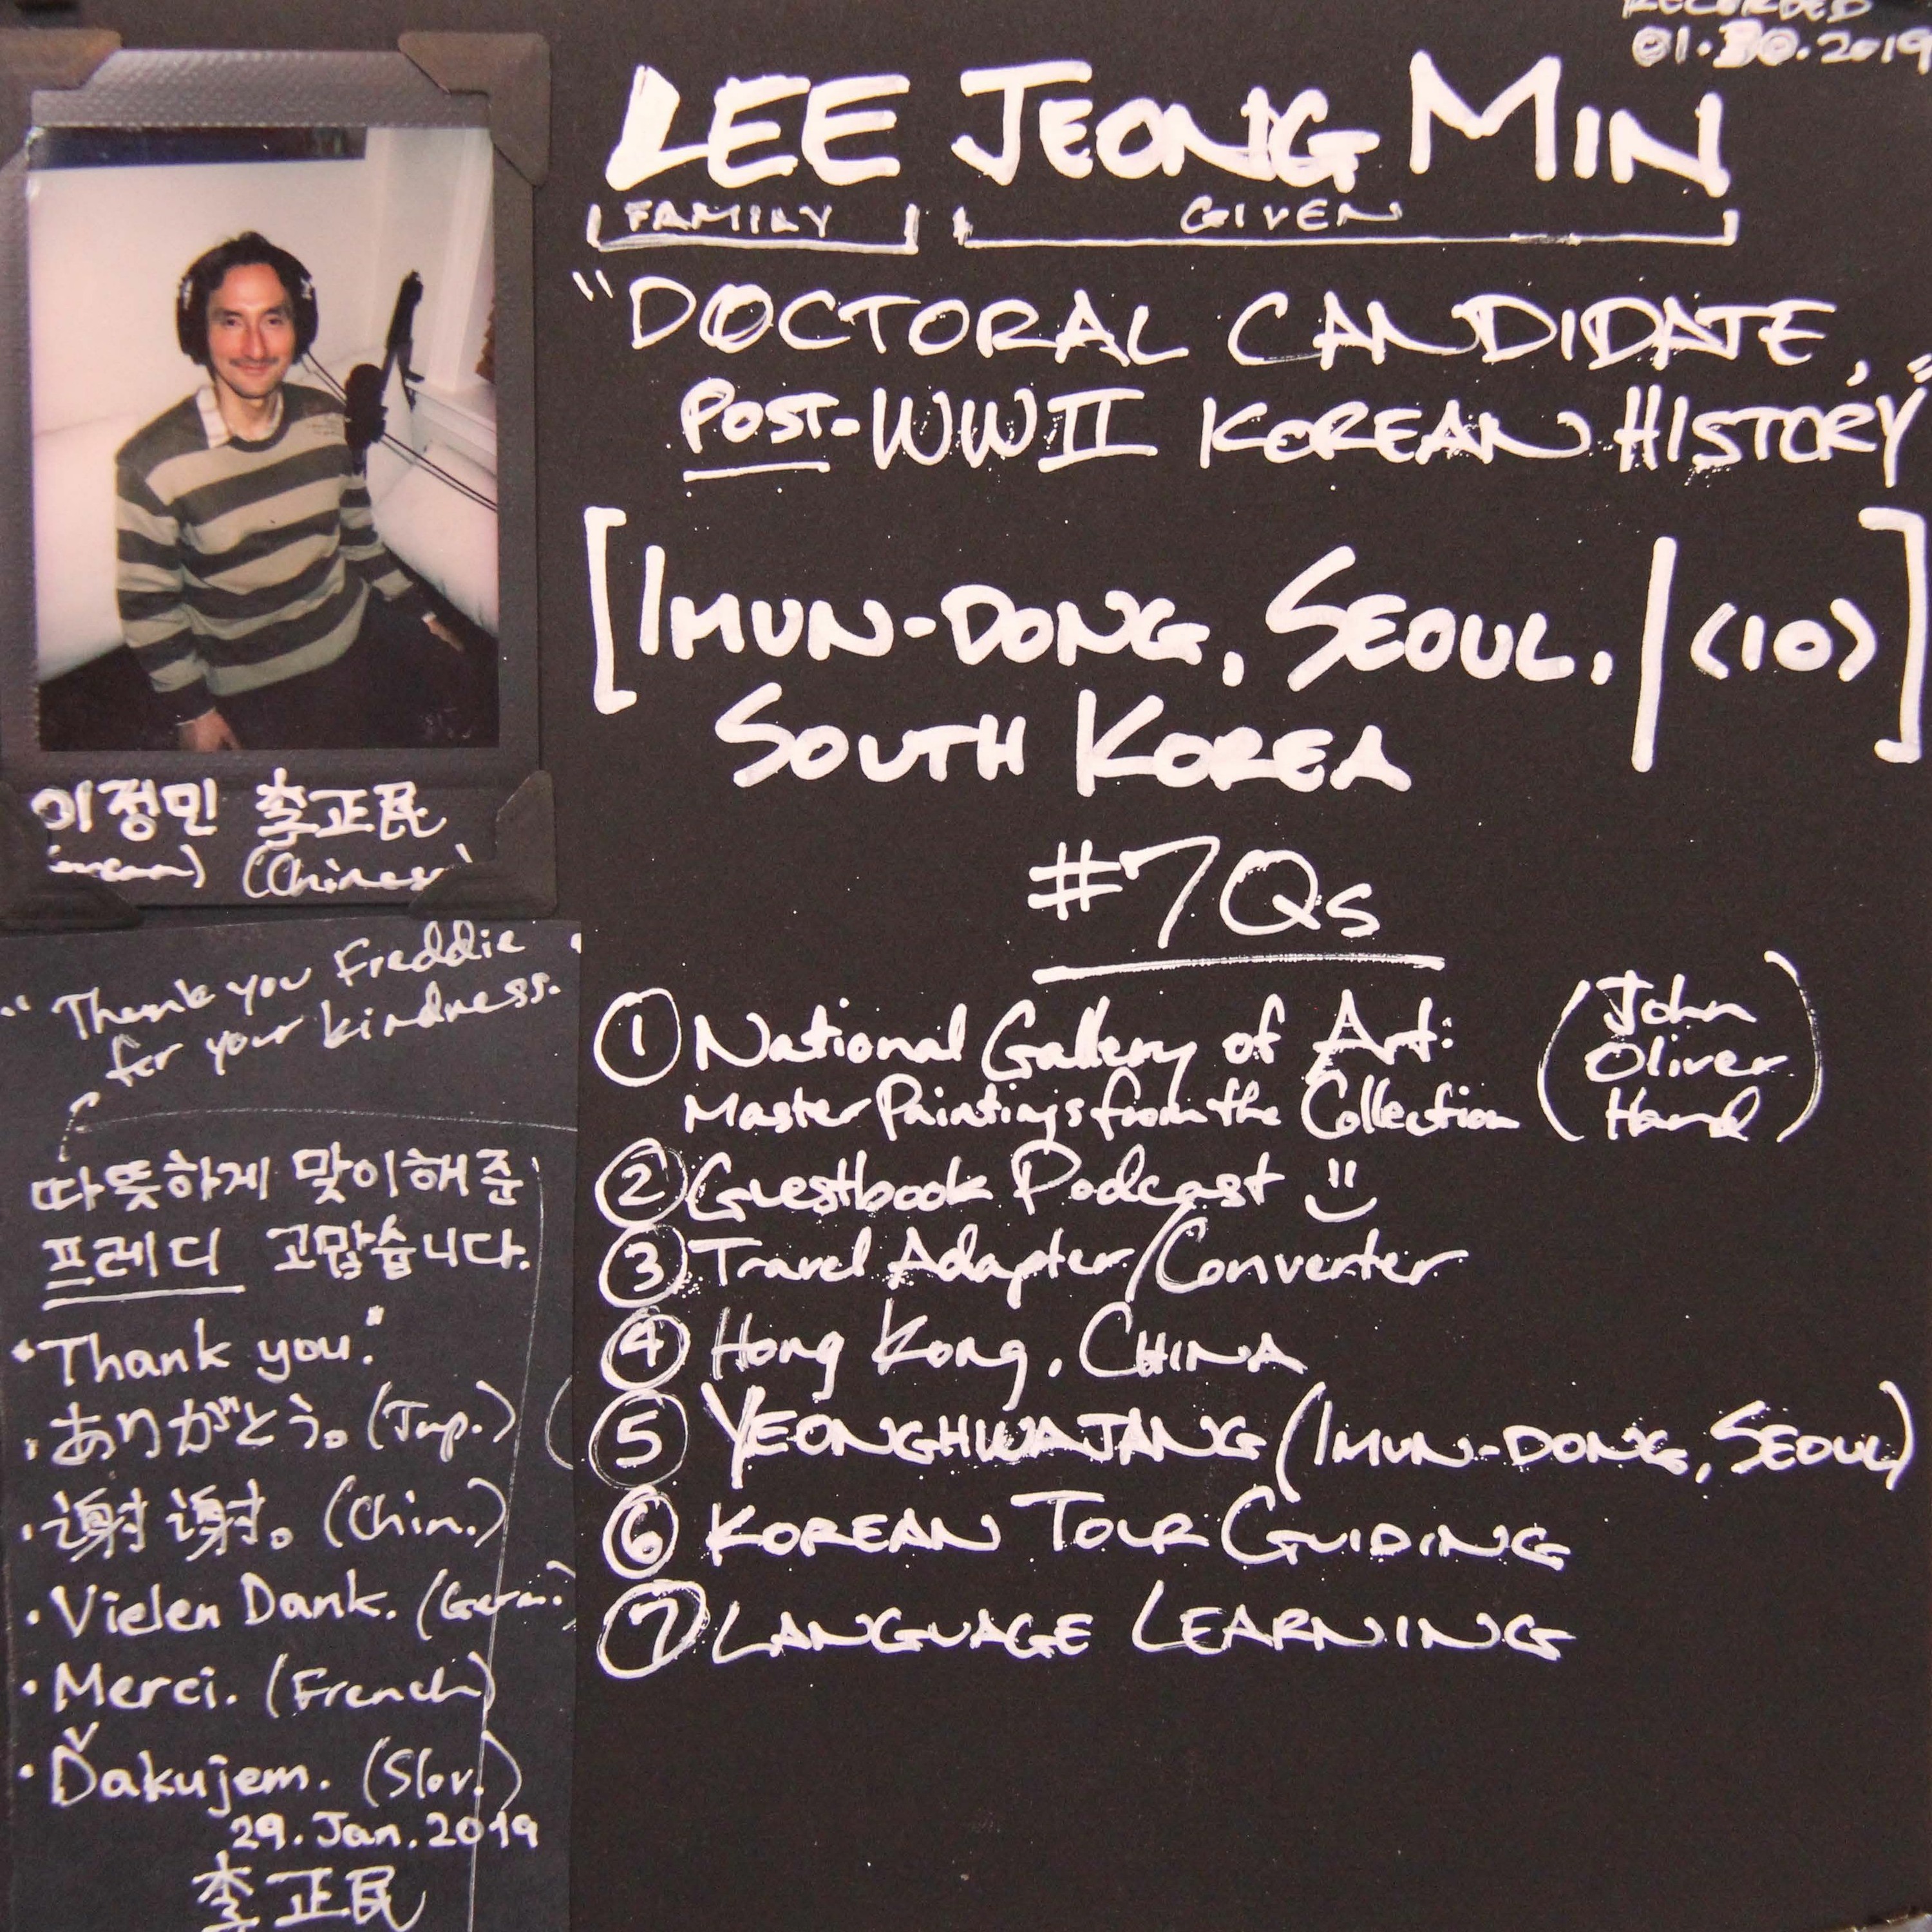 RECORDED
01.30.2019
LEE JEONG MIN
FAMILY GIVEN
"DOCTORAL CANDIDATE,
POST-WWII KOREAN HISTORY"
[IMUN-DONG, SEOUL, | <10>]
SOUTH KOREA
이정민 李正民
(Chinese
"Thank you Freddie
for your kindness."
따뜻하게 맞이해 준
프레디 고맙습니다.
"Thank you."
・ありがとう。(Jap.)
・谢谢。(Chin.)
・Vielen Dank. (Germ.)
・Merci. (French)
・Ďakujem. (Slov.)
29. Jan. 2019
李正民
#7Qs
① National Gallery of Art: (John
Master Paintings from the Collection Oliver
Hand)
② Guestbook Podcast
③ Travel Adapter/Converter
④ Hong Kong, CHINA
⑤ YEONGHWAJANG (IMUN-DONG, SEOUL)
⑥ KOREAN TOUR GUIDING
⑦ LANGUAGE LEARNING